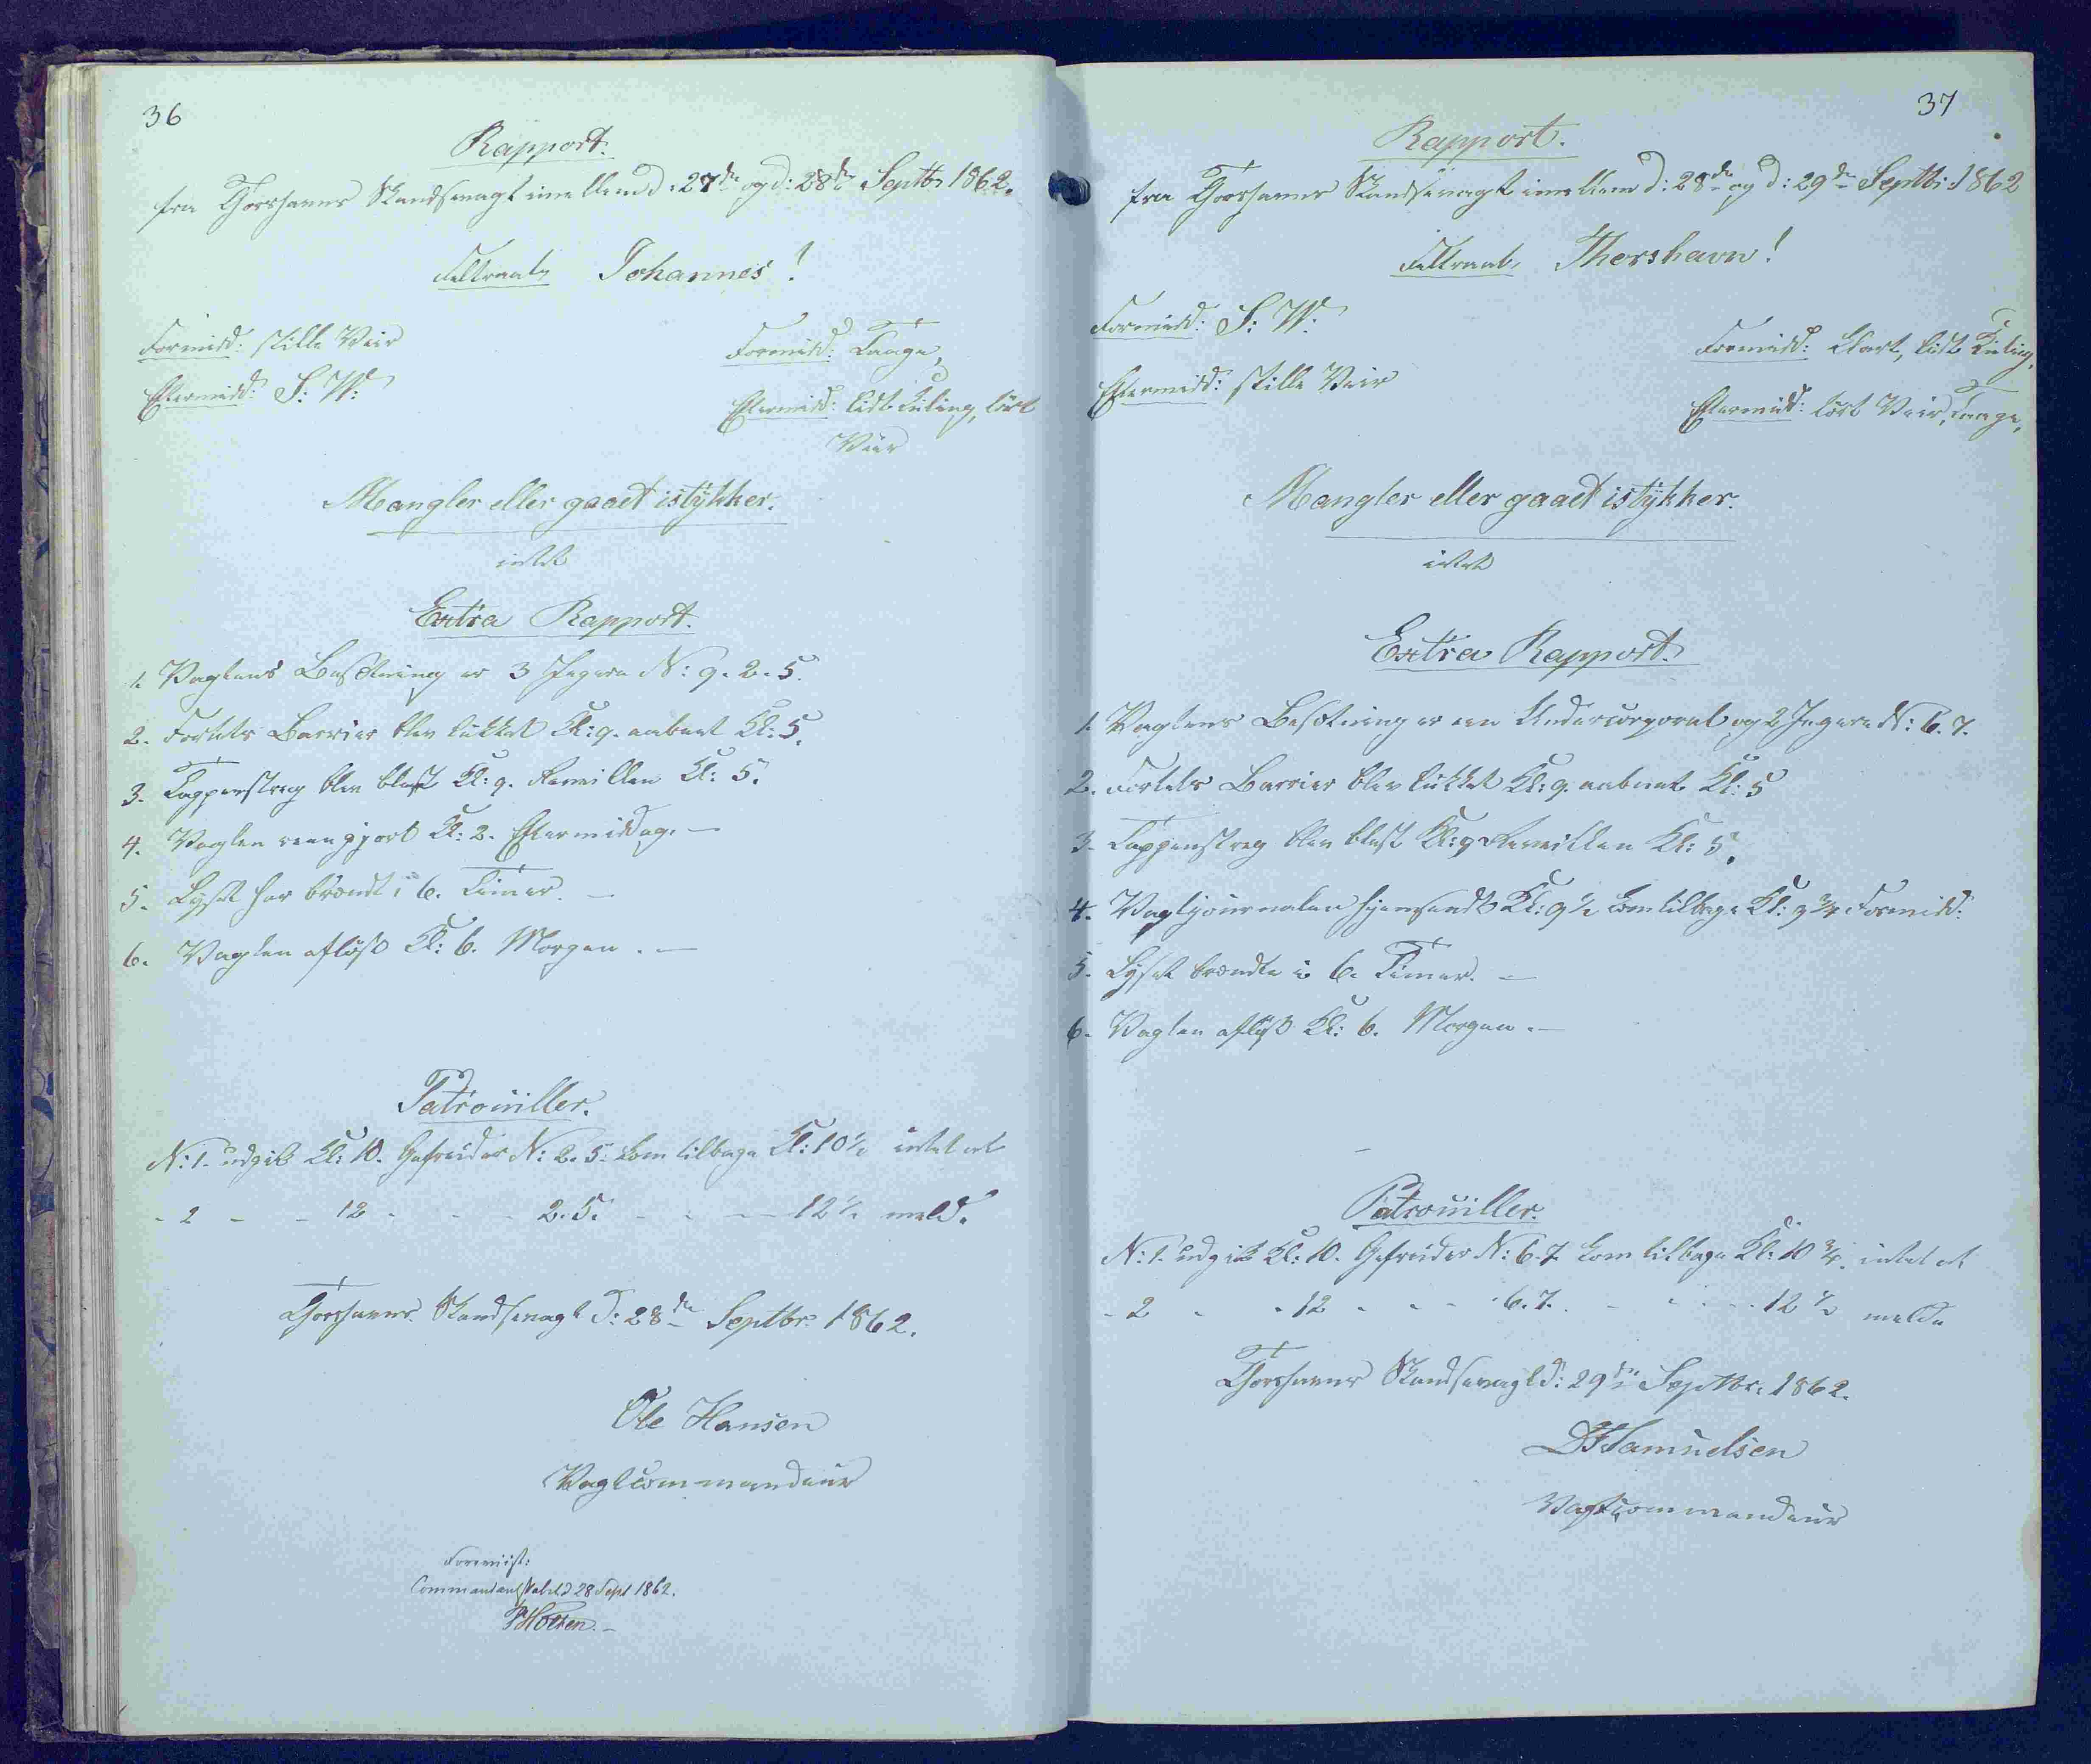 36
Rapport.
fra Thorshavns Skandsevagt imellem d: 27de og d: 28de Septbr 1862.
Feltraab, Johannes!
Formidd: stille Veir
Formidd: Taage,
Eftermidd: S: W:
Eftermidd: lidt Kuling, tørt
Veir
Mangler eller gaaet istykker.
intet
Extra Rapport.
1. Vagtens Besætning er 3 Jegere N: 9. 2. 5.
2. Fortets Barrier blev lukket Kl: 9. aabnet Kl: 5.
3. Tappenstreg blev blæst Kl: 9. Reveillen Kl: 5.
4. Vagten reengjort Kl: 2. Eftermiddag. —
5. Lyset har brændt i 6. Timer. —
6. Vagten afløst Kl: 6. Morgen. —
Patrouiller.
N: 1. udgik Kl: 10. Gefreider N: 2. 5. kom tilbage Kl: 10½ intet at
- 2 - - 12 - - - 2. 5. - - - - 12½ meld.
Thorshavns Skandsevagt d: 28de Septbr. 1862.
Ole Hansen
Vagtcommandeur
Foreviist:
Commandantskabet d 28 Sept 1862.
37
Rapport.
fra Thorshavns Skandsevagt imellem d: 28de og d: 29de Septbr: 1862
Feltraab, Thorshavn!
Formidd: S: W:
Formidd: klart, lidt Kuling,
Eftermidd: stille Veir
Eftermidd: tørt Veir, Taage,
Mangler eller gaaet istykker.
intet
Extra Rapport.
1. Vagtens Besætning er een Undercorporal og 2 Jegere N: 6. 7.
2. Fortets Barrier blev lukket Kl: 9. aabnet Kl: 5
3. Tappenstreg blev blæst Kl: 9 Reveillen Kl: 5.
4. Vagtjournalen hjemsendt Kl: 9½ kom tilbage Kl: 9¾ Formidd:
5. Lyset brændte i 6. Timer. —
6. Vagten afløst Kl: 6. Morgen. —
Patrouiller.
N: 1. udgik Kl: 10. Gefreider N: 6. 7. kom tilbage Kl: 10¾. intet at
- 2 - - 12 - - - 6. 7. - - - - 12½ melde
Thorshavns Skandsevagt d: 29de Septbr. 1862.
Samuelsen
Vagtcommandeur